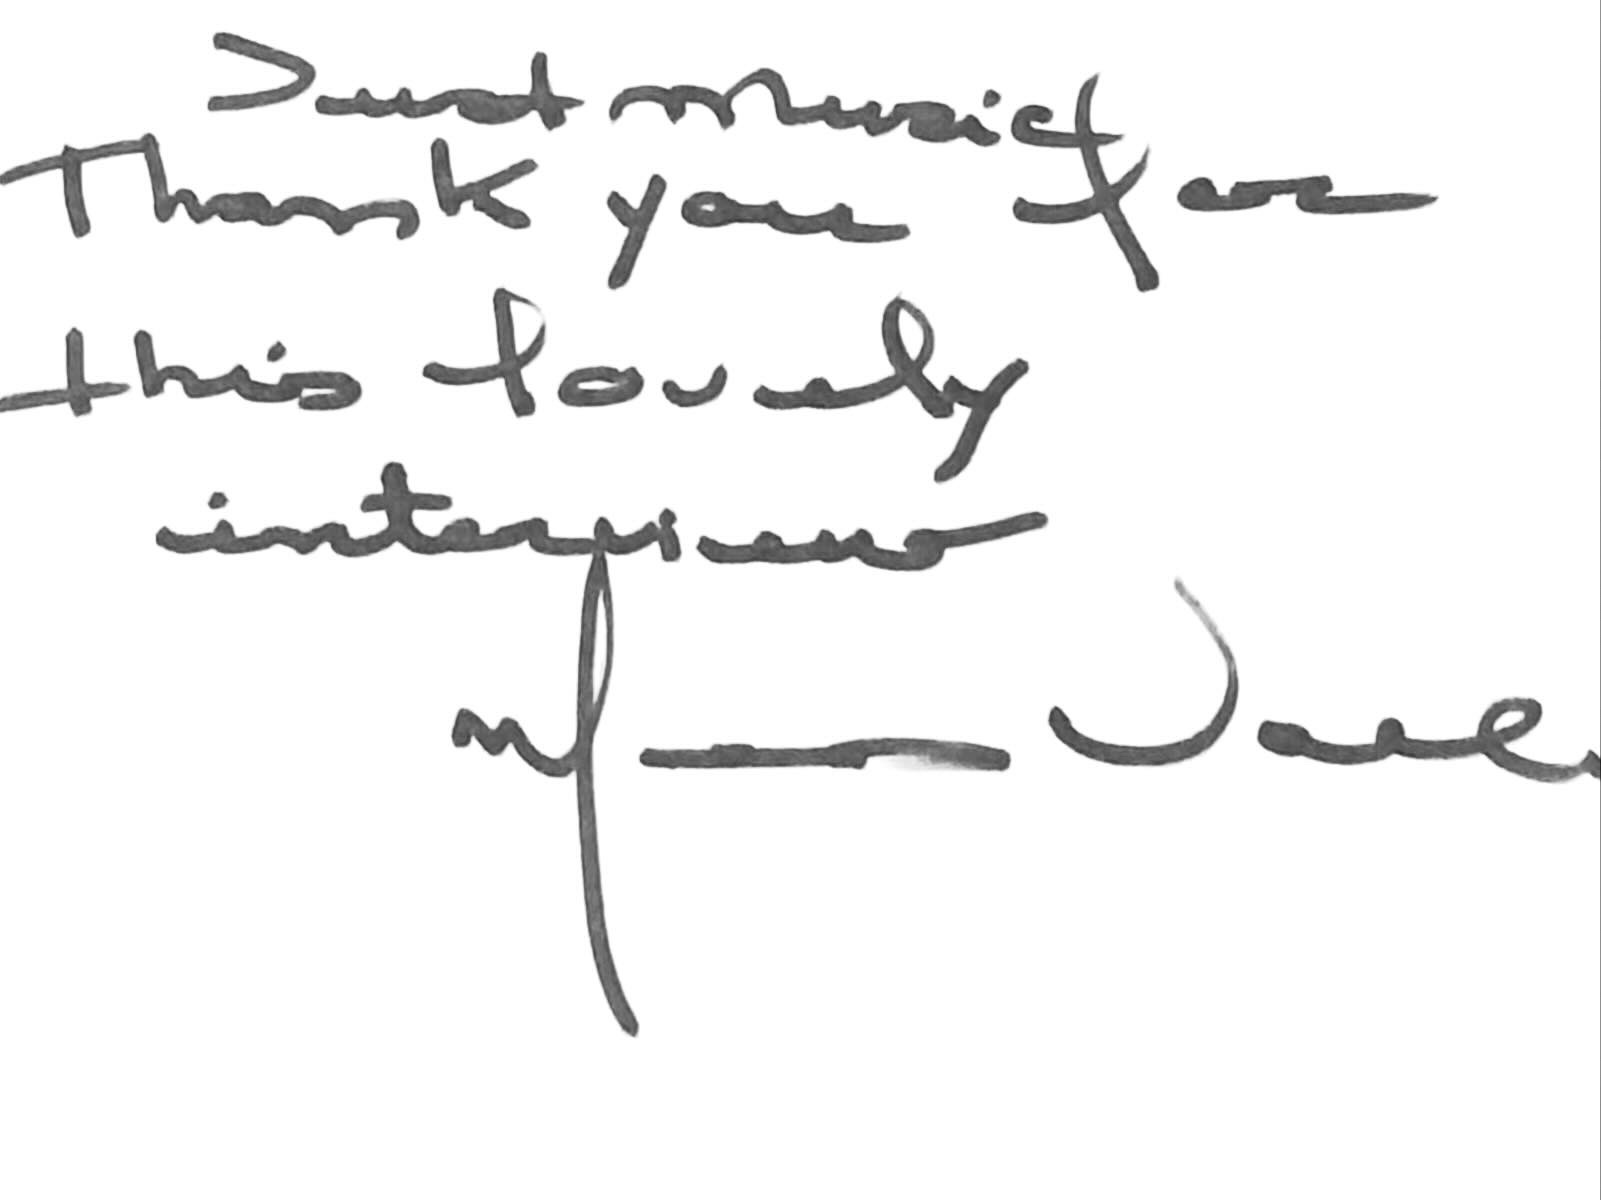 Just music
Thank you for
this lovely
interview